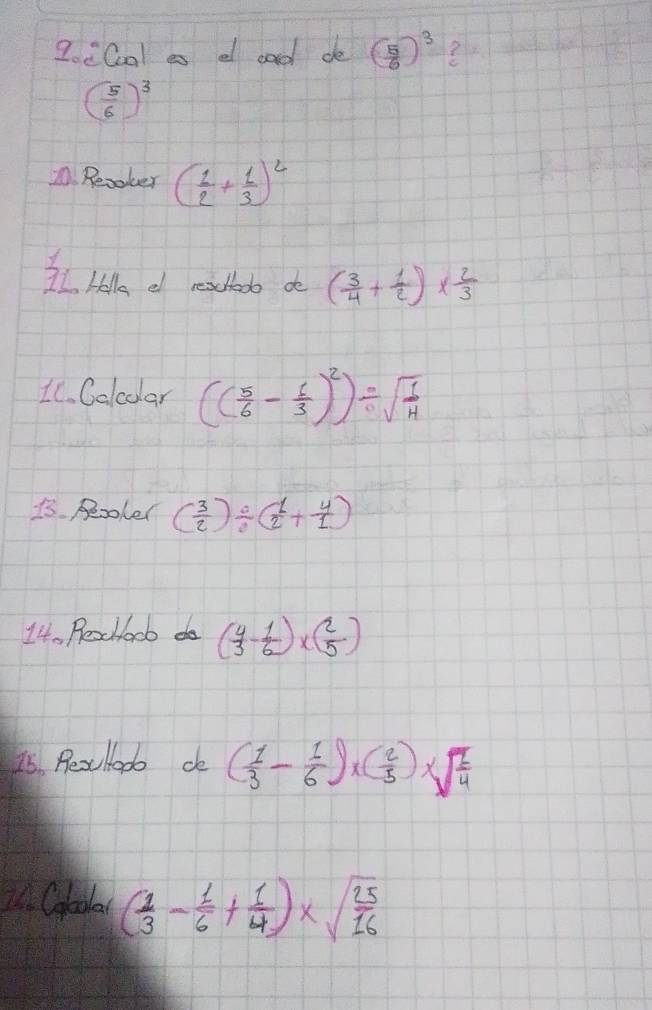 9. ¿Cual es el cod de (5/6)³?
(5/6)³
10. Resolver (1/2 + 1/3)²
11. Halla el resultado de (3/4 + 1/2) x 2/3
12. Calcular ((5/6 - 1/3)²) ÷ √1/4
13. Resolver (3/2) ÷ (1/2 + 4/1)
14. Resultado de (4/3 - 1/6) x (2/5)
15. Resultado de (1/3 - 1/6) x (2/5) x √1/4
16. Calcular (1/3 - 1/6 + 1/4) x √25/16